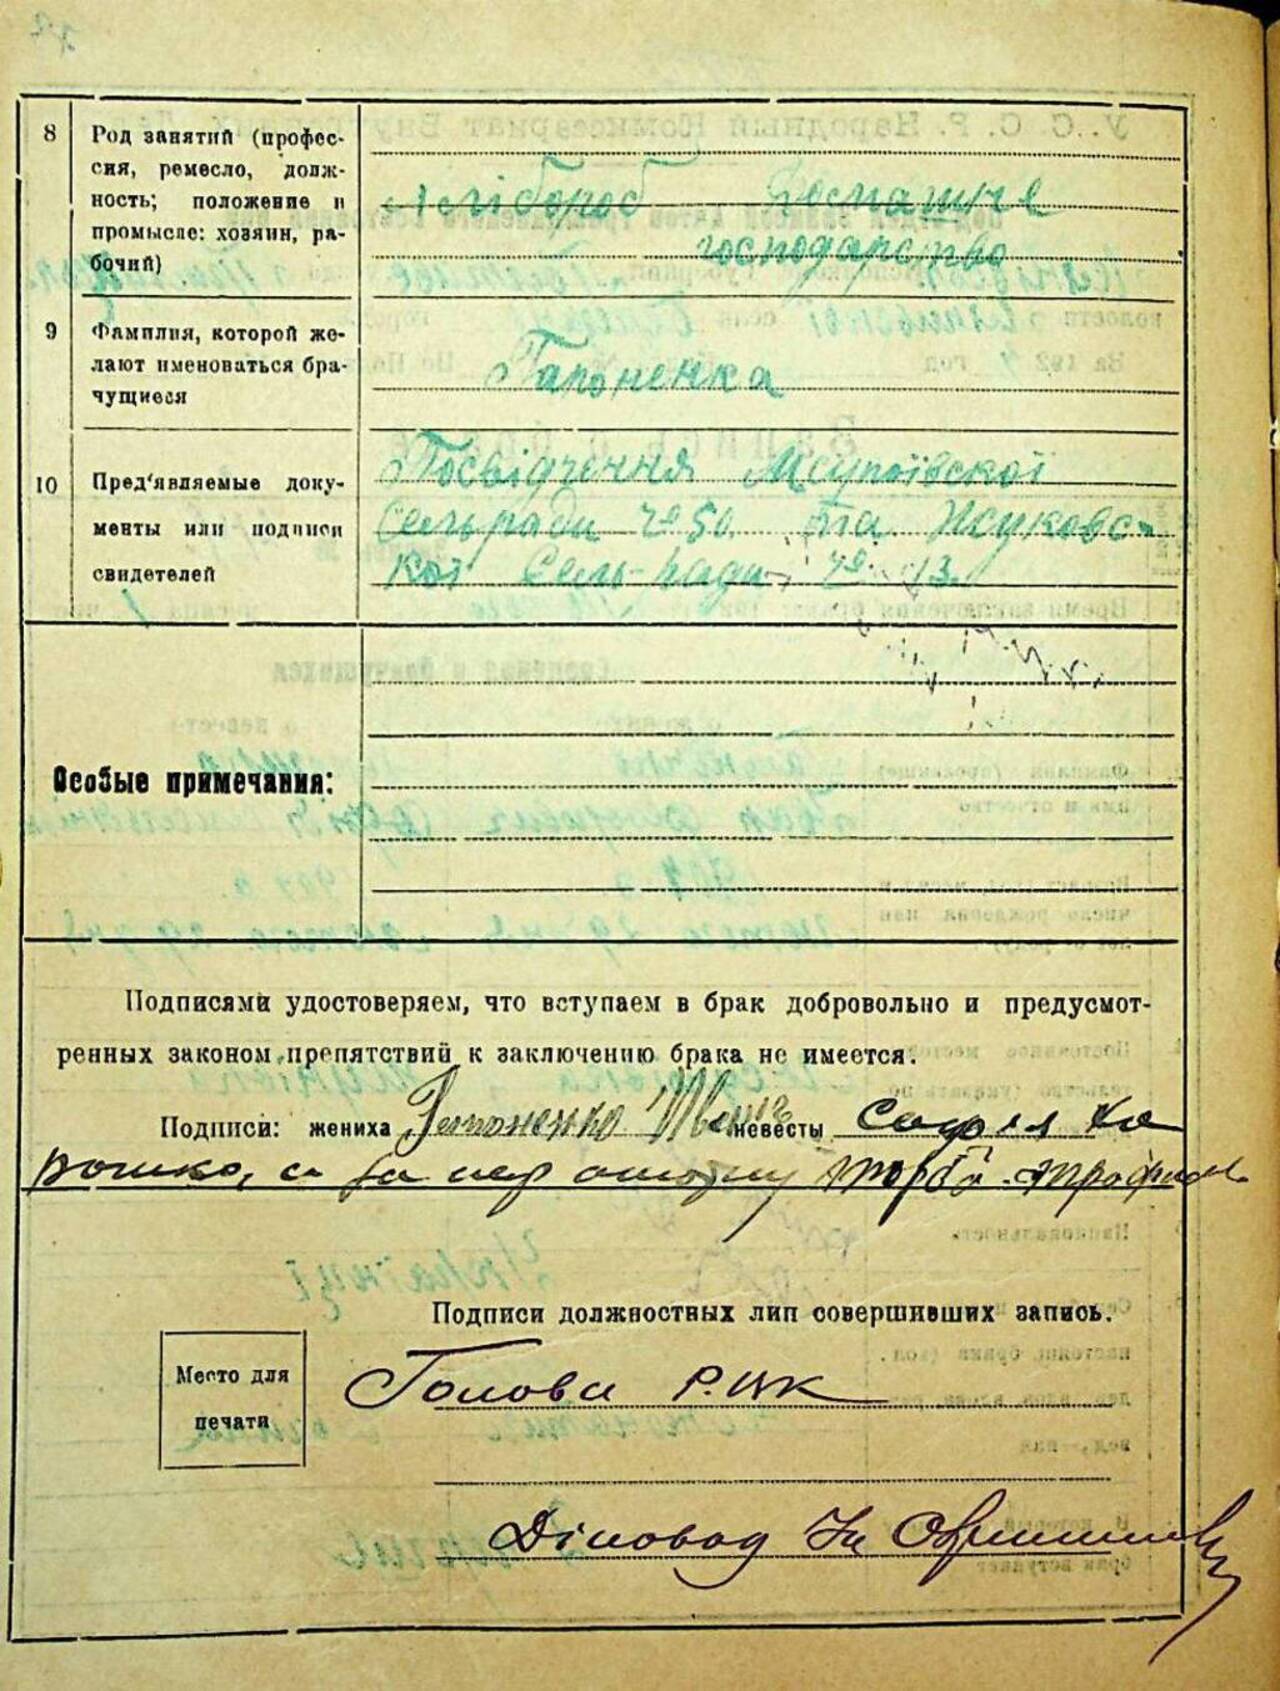 8
Род занятий (профес-
сия, ремесло, долж-
ность; положение в
промысле: хозяин, ра-
бочий)
Хлібороб Домашнє
господарство
9
Фамилия, которой же-
лают именоваться бра-
чущиеся
Гапоненка
10
Пред'являемые доку-
менты или подписи
свидетелей
Посвідчення
Сельради № 50 та Жуковс-
кої Сель-Ради № 13.
Особые примечания:
Подписями удостоверяем, что вступаем в брак добровольно и предусмот-
ренных законом препятствий к заключению брака не имеется.
Подписи: жениха Гапоненко невесты София Хо
рошко, а за
Подписи должностных лиц совершивших запись.
Место для
печати
Голова
Діловод